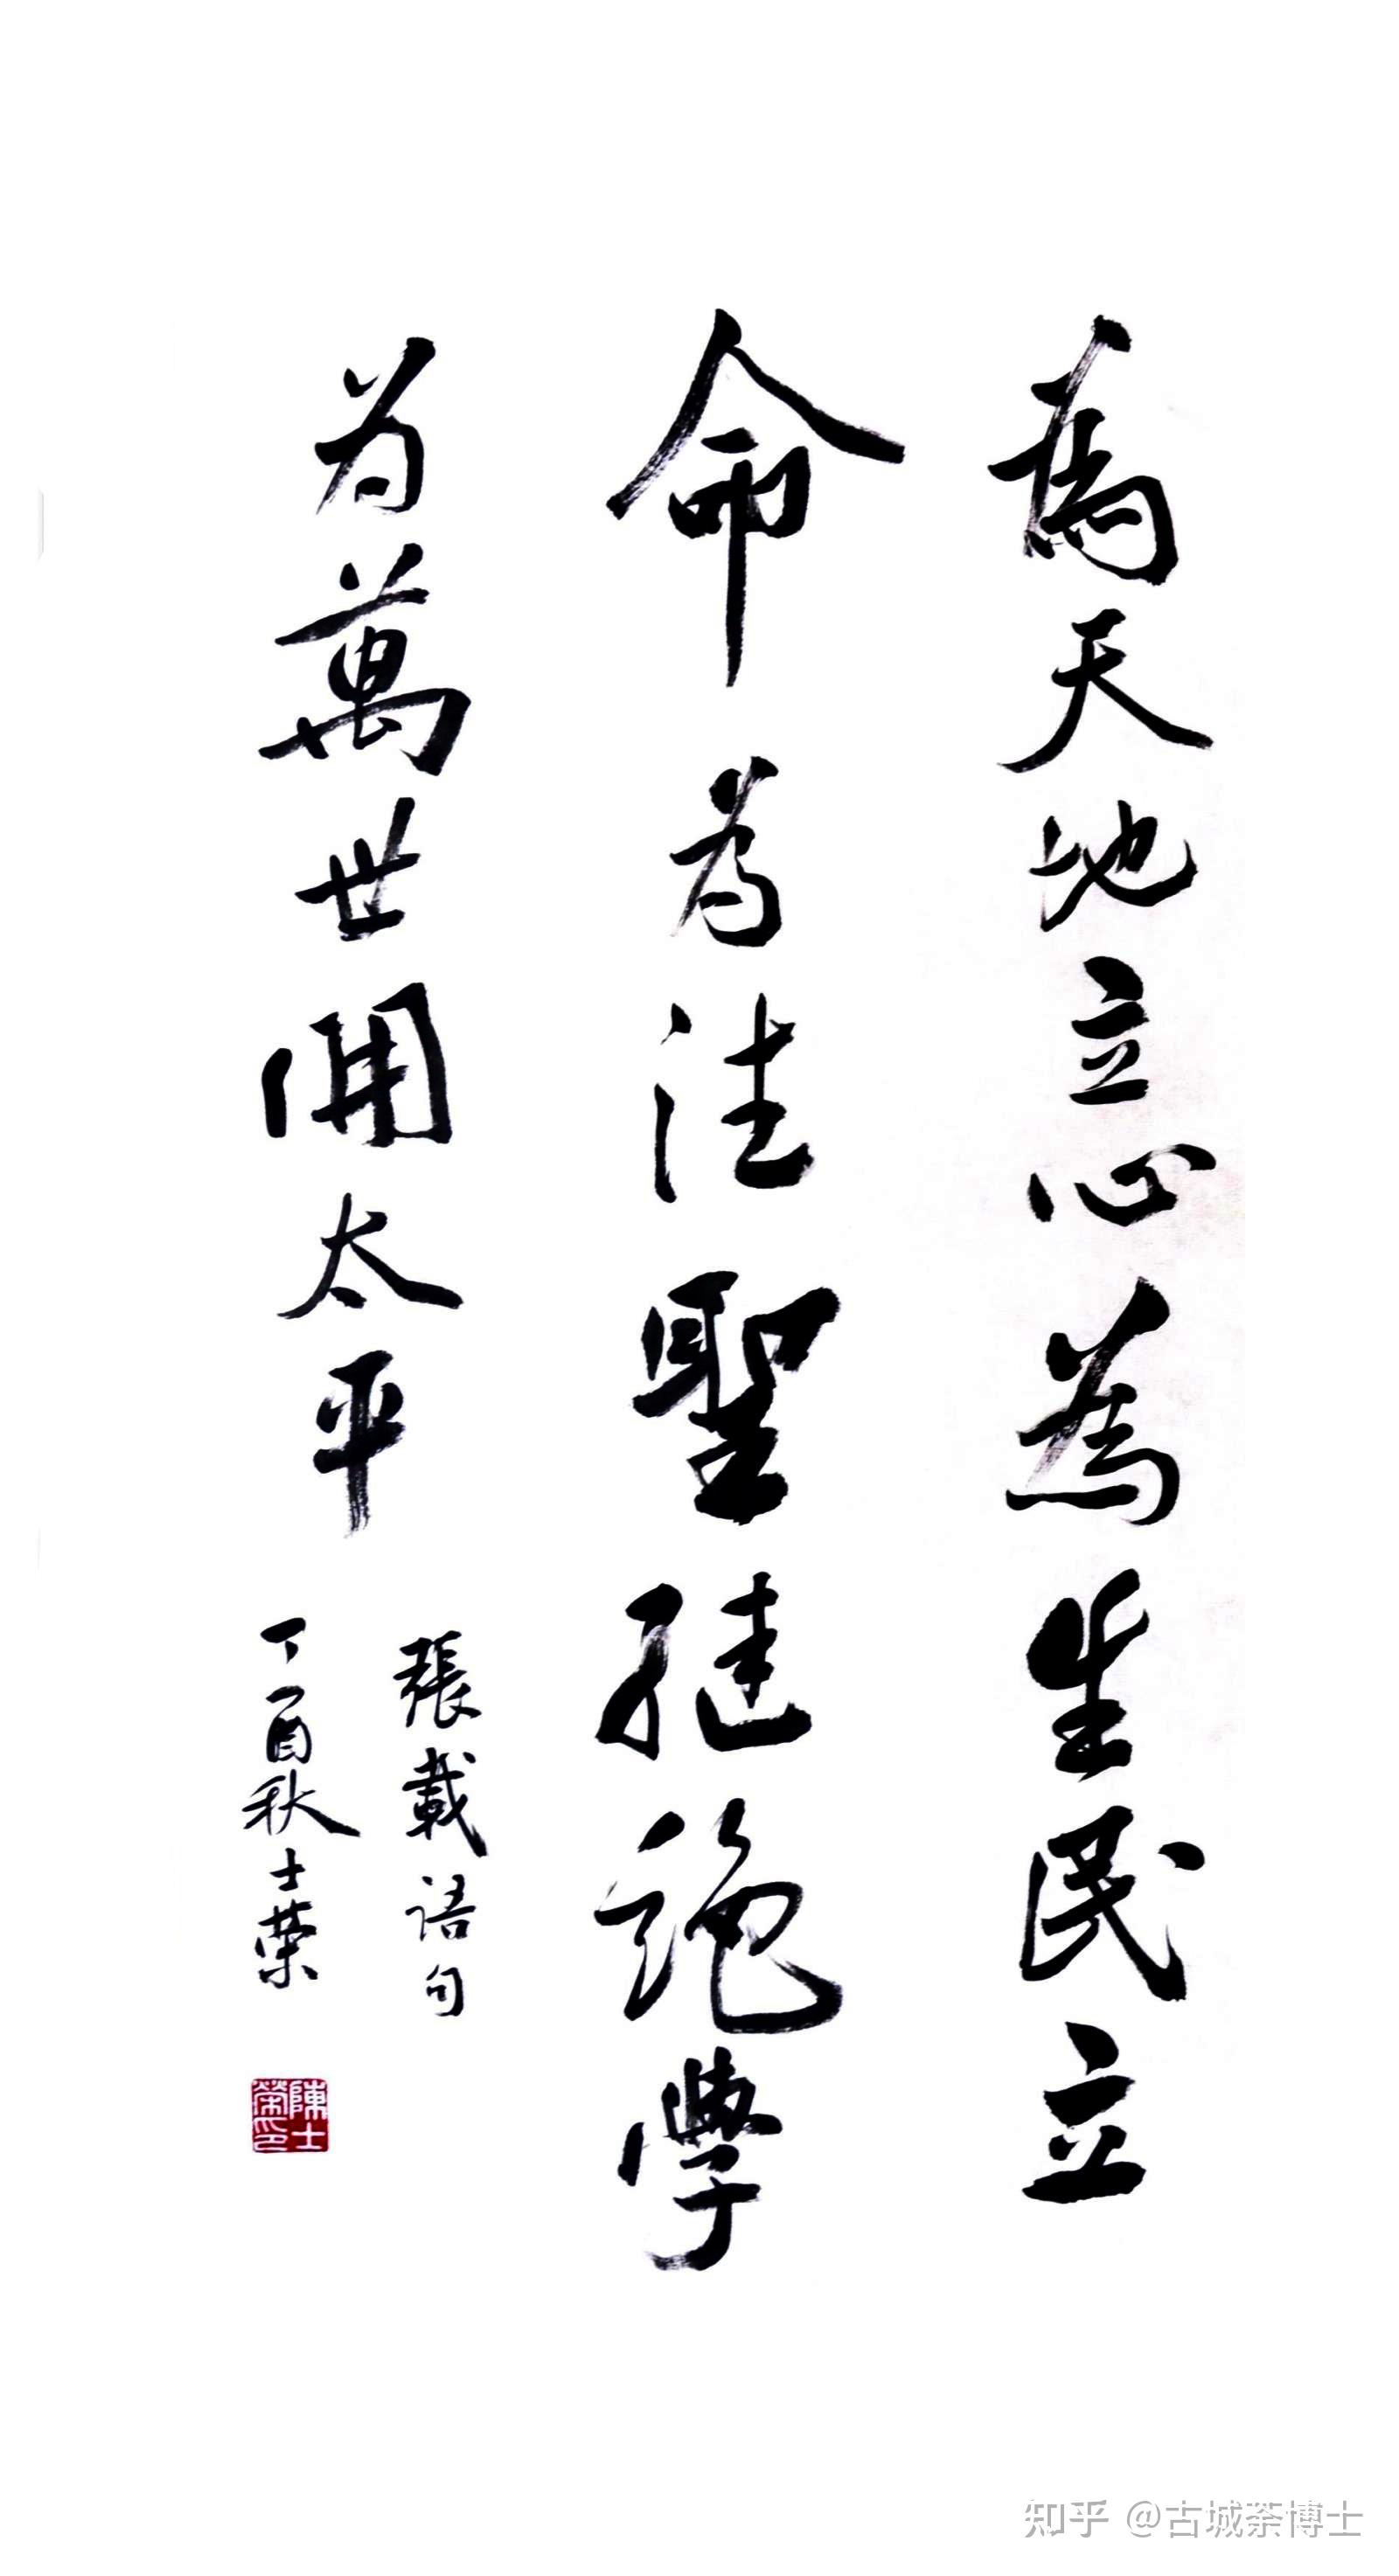 為天地立心為生民立
命為往聖繼絕學
为萬世開太平
張載語句
丁酉秋士荣
陳士榮印
知乎 @古城茶博士